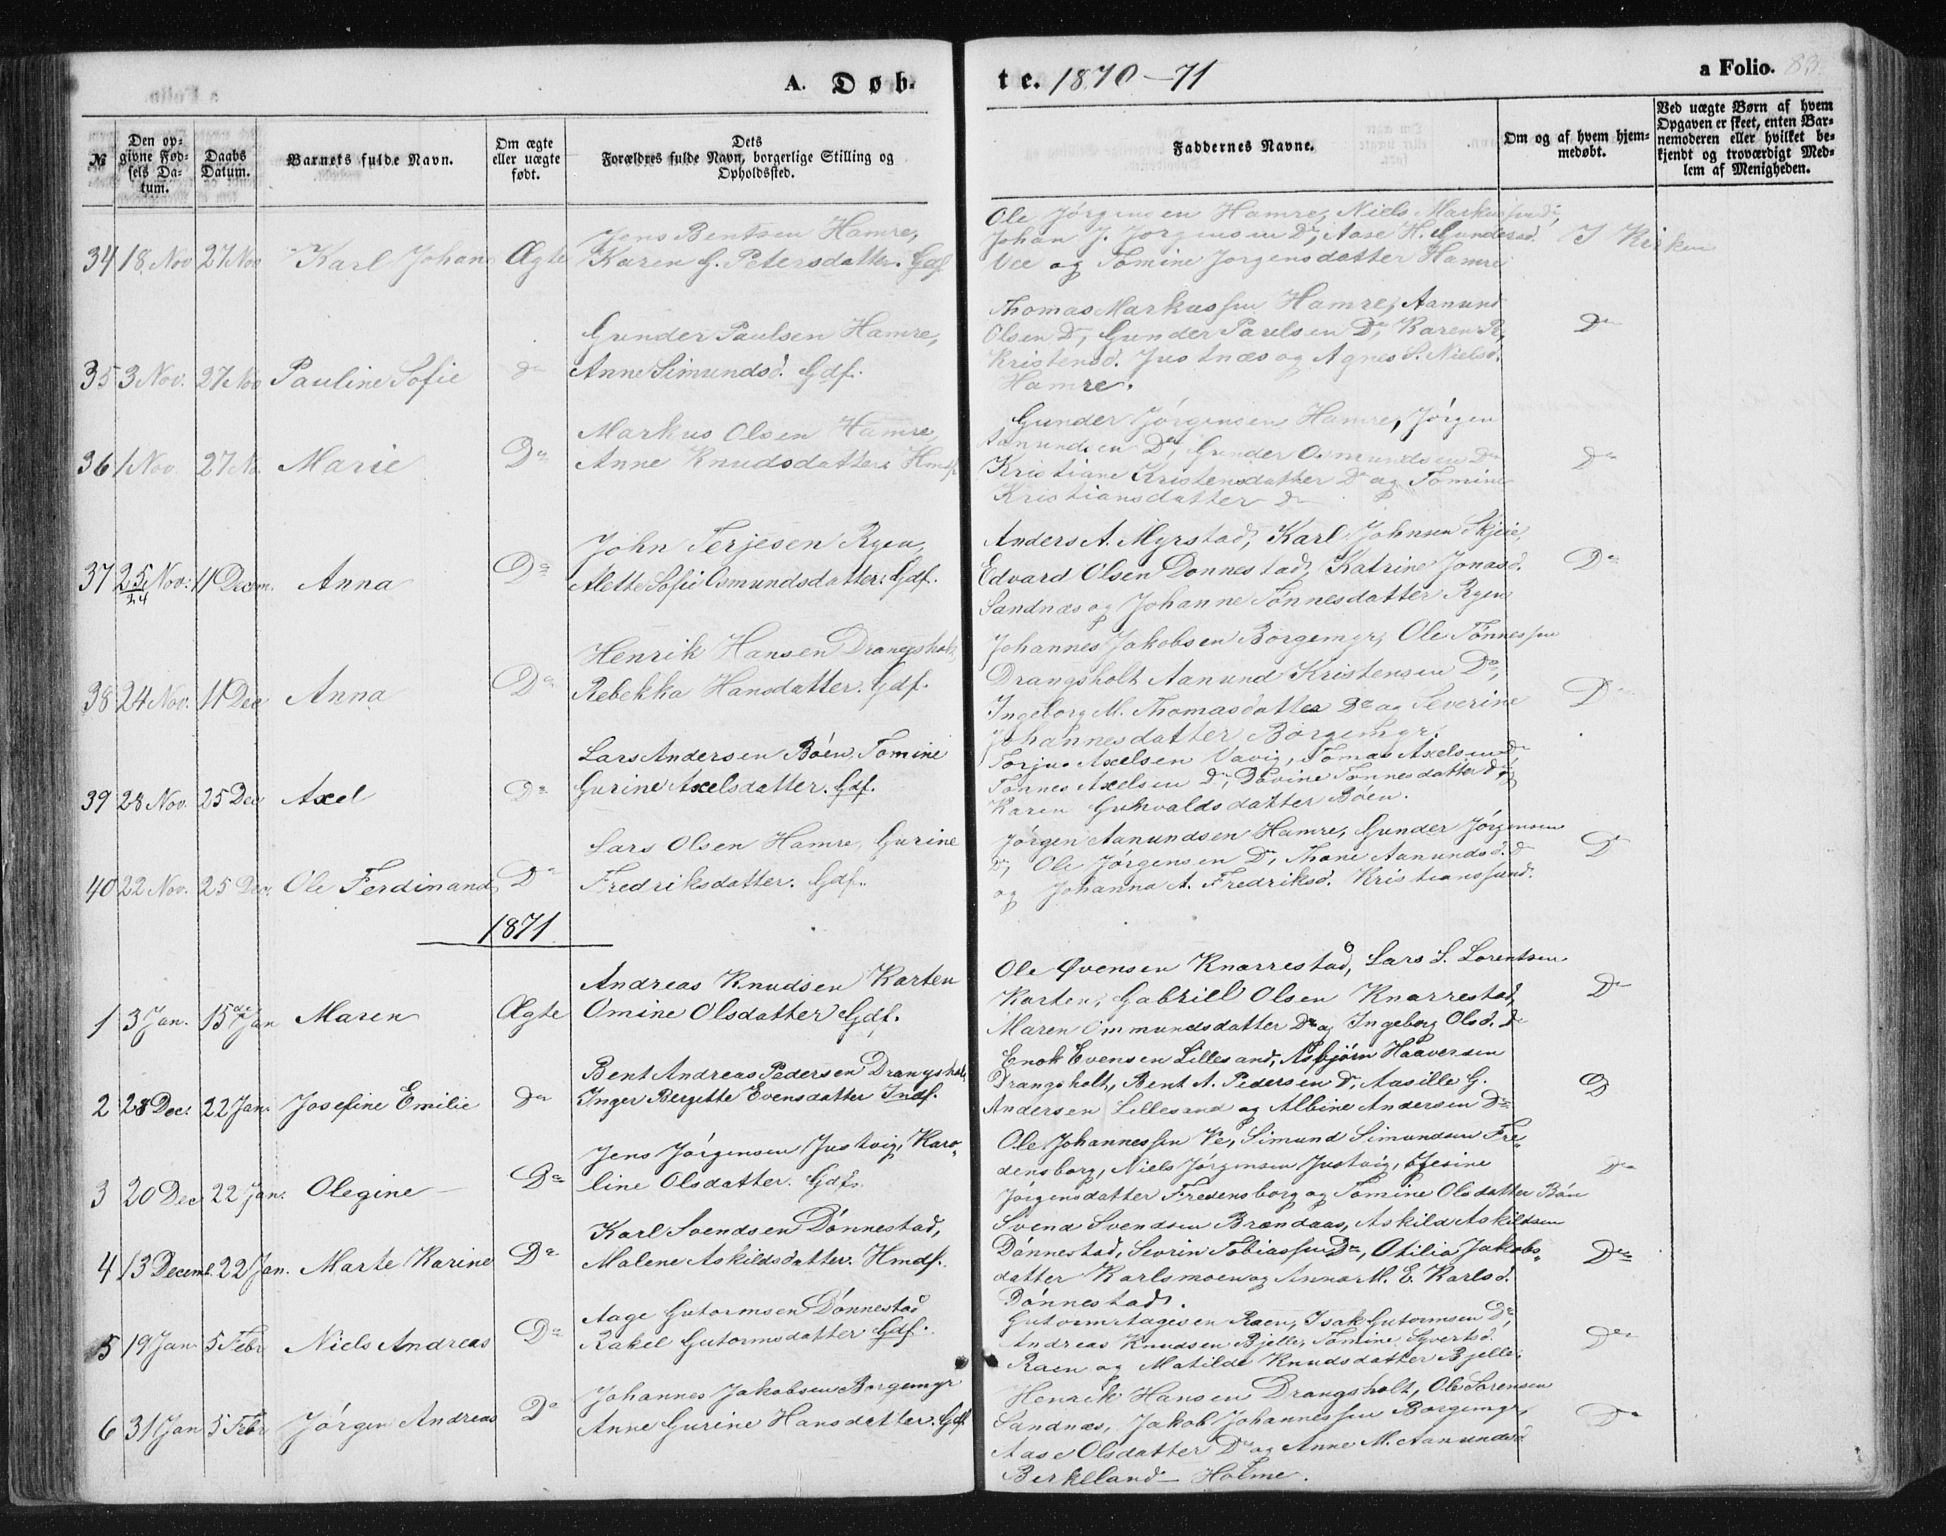 A. Døb-
te. 1870-71
a Folio. 83.
№
Den op-
givne Fød-
sels Da-
tum.
Daabs
Datum.
Barnets fulde Navn.
Om ægte
eller uægte
født.
Dets
Forældres fulde Navn, borgerlige Stilling og
Opholdssted.
Faddernes Navne.
Om og af hvem hjem-
medøbt.
Ved uægte Børn af hvem
Opgaven er skeet, enten Bar-
nemoderen eller hvilket be-
kjendt og troværdigt Med-
lem af Menigheden.
34 18 Nov 27 Nov Karl Johan Ægte
Jens Bentsen Hamre,
Karen G. Petersdatter. Gdf.
Ole Jörgensen Hamre, Niels Markussen Do,
Johan J. Jorgensen Do, Aase H. Gundersd.
Vee og Tomine Jorgensdatter Hamre
I Kirken
35 3 Nov. 27 Nov Pauline Sofie do
Gunder Paulsen Hamre,
Anne Simundsd. Gdf.
Thomas Markussen Hamre, Aanund
Olsen Do, Gunder Paulsen Do, Karen R.
Kristensd. Justnæs og Agnes S. Nielsd.
Hamre.
Do
36 1 Nov. 27 No. Marie Do
Markus Olsen Hamre,
Anne Knudsdatter. Hmdf.
Gunder Jörgensen Hamre, Jörgen
Aanundsen Do, Gunder Osmundsen Do
Kristiane Kristensdatter Do og Tomine
Kristiansdatter do
Do
37 25/24 Nov: 11 Decem. Anna Do
John Terjesen Ryen,
Alette Sofie Osmundsdatter. Gdf.
Anders A. Myrstad, Karl Johnsen Skjeie,
Edvard Olsen Dønnestad, Katrine Jonasd.
Sandnæs og Johanne Tönnesdatter Ryen
Do
38 24 Nov. 11 Dec Anna Do
Henrik Hansen Drangsholt,
Rebekka Hansdatter. Gdf.
Johannes Jakobsen Borgemyr, Ole Tönnessen
Drangsholt Aanund Kristensen Do,
Ingeborg M. Thomasdatter Do og Severine
Johannesdatter Borgemyr.
Do
39 28 Nov. 25 Dec Axel Do
Lars Andersen Böen, Tomine
Gurine Axelsdatter. Gdf.
Torjus Axelsen Vavig, Tomas Axelsen do
Tönnes Axelsen Do, Davine Tönnesdatter do, og
Karen Guhvaldsdatter Böen.
40 22 Nov. 25 Dec. Ole Ferdinand Do
Lars Olsen Hamre, Gurine
Fredriksdatter. Gdf.
Jörgen Aanundsen Hamre, Gunder Jörgensen
Do, Ole Jörgensen Do, Thone Aanundsd. do
og Johanna A. Fredriksd. Kristianssund.
Do
1871
1 3 Jan. 15de Jan Maren Ægte
Andreas Knudsen Karten
Omine Olsdatter Gdf.
Ole Øvensen Knarrestad, Lars S. Lorentsen
Karten, Gabriell Olsen Knarrestad,
Maren Ommundsdatter Do og Ingeborg Olsd. do
Do
2 28 Dec: 22 Jan. Josefine Emilie Do
Bent Andreas Pedersen Drangsholt,
Inger Bergitte Evensdatter Indf.
Enok Evensen Lillesand, Asbjörn Haaversen
Drangsholt, Bent A. Pedersen Do, Aasille G.
Andersen Lillesand og Albine Andersen Do
D
3 20 Dec 22 Jan. Olegine Do
Jens Jörgensen Justvig, Karo-
line Olsdatter. Gdf.
Ole Johannessen Ve, Simund Simundsen Fre-
densborg, Niels Jörgensen Justvig, Gjesine
Jörgensdatter Fredensborg og Tomine Olsdatter Böen
Do
4 13 Decemb. 22 Jan. Marte Karine Do
Karl Svendsen Dönnestad,
Malene Askildsdatter. Hmdf.
Svend Svendsen Brændaas, Askild Askildsen
Dönnestad, Sevrin Tobiassen Do, Otilia Jakobs-
datter Karlsmoen og Anna M. E. Karlsd.
Dönnestad.
Do
5 19 Jan 5 Febr Niels Andreas Do
Aage Gutormsen Dönnestad
Rakel Gutormsdatter Gdf.
Gutorm Aagesen Raen, Isak Gutormsen Do,
Andreas Knudsen Bjelle, Tomine Syvertsd.
Raen og Matilde Knudsdatter Bjelle.
Do
6 31 Jan 5 Febr Jörgen Andreas Do
Johannes Jakobsen Borgemyr
Anne Gurine Hansdatter. Gdf
Henrik Hansen Drangsholt, Ole Sorensen
Sandnæs, Jakob Johannessen Borgemyr,
Aase Olsdatter Do og Anne M. Aanundsd
Berkeland Holme.
Do